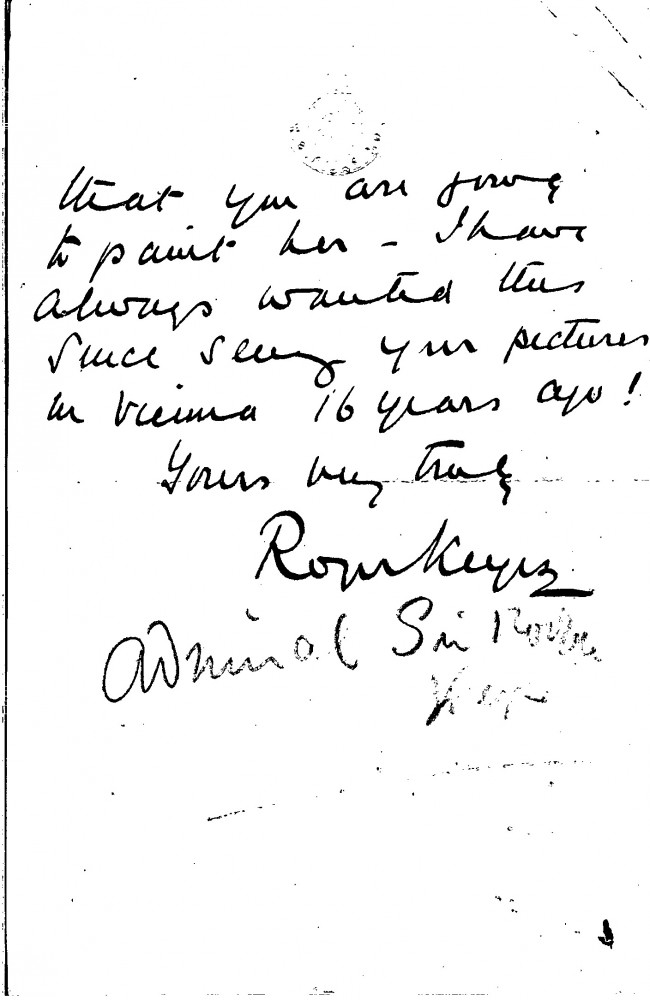 that you are going
to paint her – I have
always wanted this
since seeing your pictures
in Vienna 16 years ago!
Yours very truly
Roger Keyes
Admiral Sir Roger
Keyes